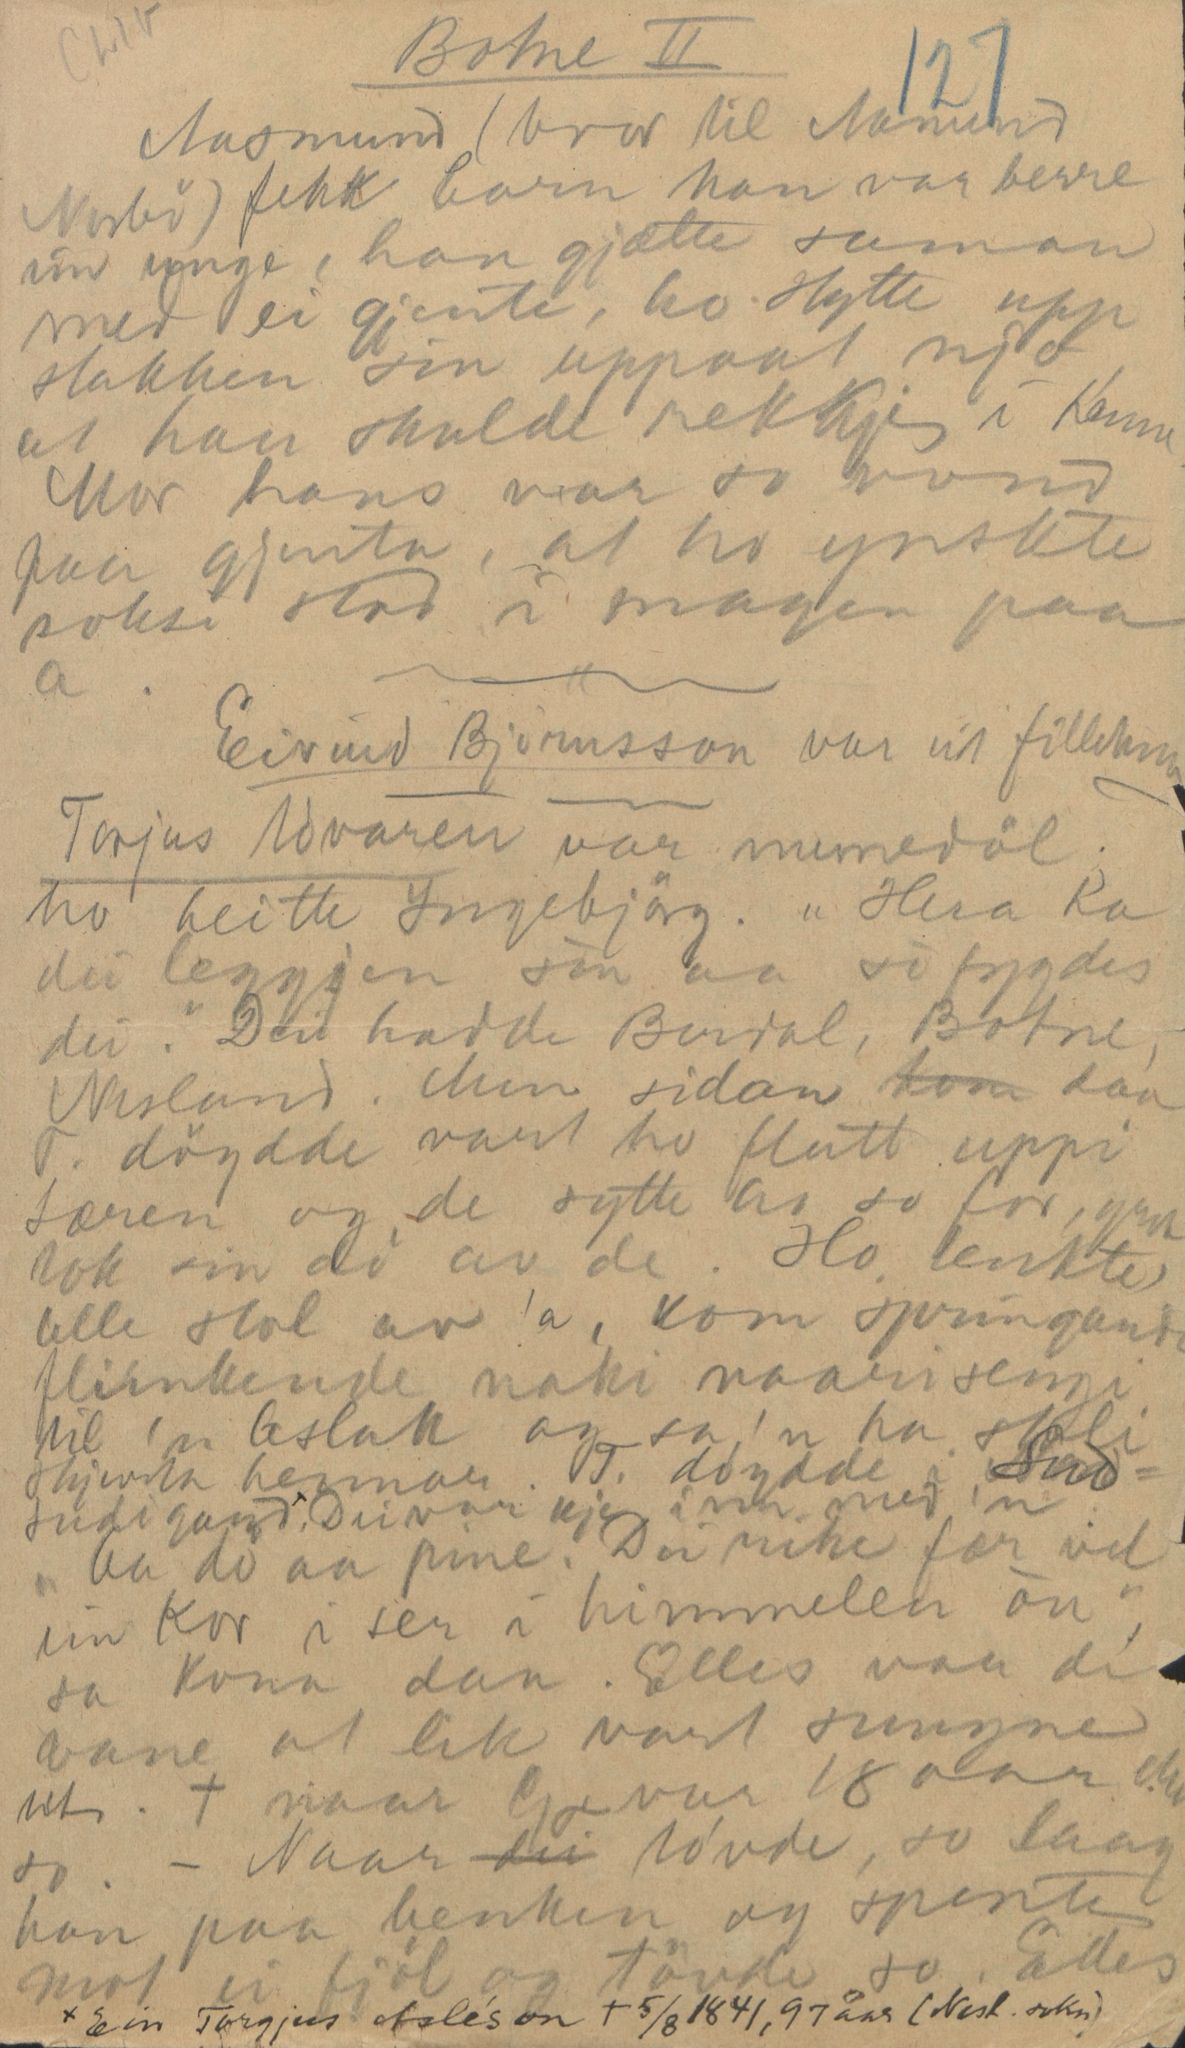 Botne II
127
Aasmund (bror til Aamund
Nerbö) fekk born han var berre
ūn unge, han gjætte saman
med ei gjente, ho. Hytte upp
stakken sin uppaat njo
at han skulde rekkje i
Mor hans var so vond
paa gjenta, at ho ynskte
soksi stod i magen paa
a.
Eivind Björnsson var ūt
Torjus Tövaren var numedöl.
ho heitte Ingebjörg. "Hera ka
dei leggjen sin aa so
dei." Dei hadde Burdal, Botne,
Nesland. Men sidan kom daa
T. döydde vart ho flutt uppi
og de sytte ho so for,
tok sin dö av de. Ho tenkte
alle stol av 'a, kom springande
flirnkende naki
til 'n Aslak og sa 'n ha
hennar. T. döydde i
Dei var inn med 'n.
"Aa dö aa pine. Dei rike fær vel
ūin Kor i ser i himmelen òu",
sa Kona daa. Elles var di
vane at lik vart sungne
ut. † naar Gj. var 18 aar
so. - Naar dei tövde, so laag
han paa benken og spente
mot ei fjöl og tövde so. Elles
x Ein Torgjus Asleson † 5/8 1841, 97 åar (Nesl. sokn)